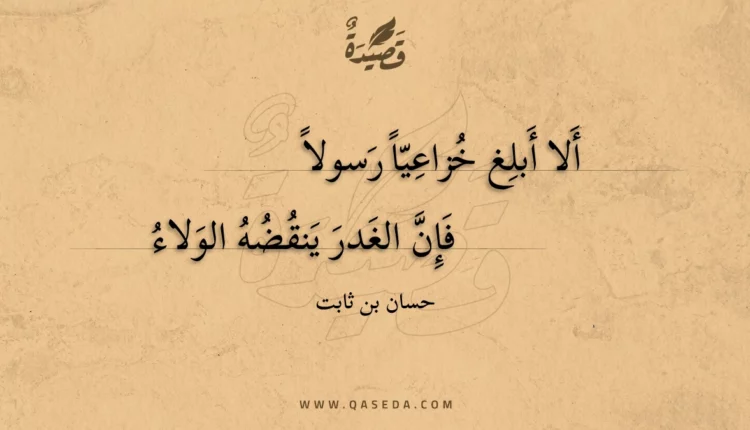 قَصِيدَةٌ
أَلا أَبلِغ خُزاعِيّاً رَسولاً
فَإِنَّ الغَدرَ يَنقُضُهُ الوَلاءُ
حسان بن ثابت
WWW.QASEDA.COM